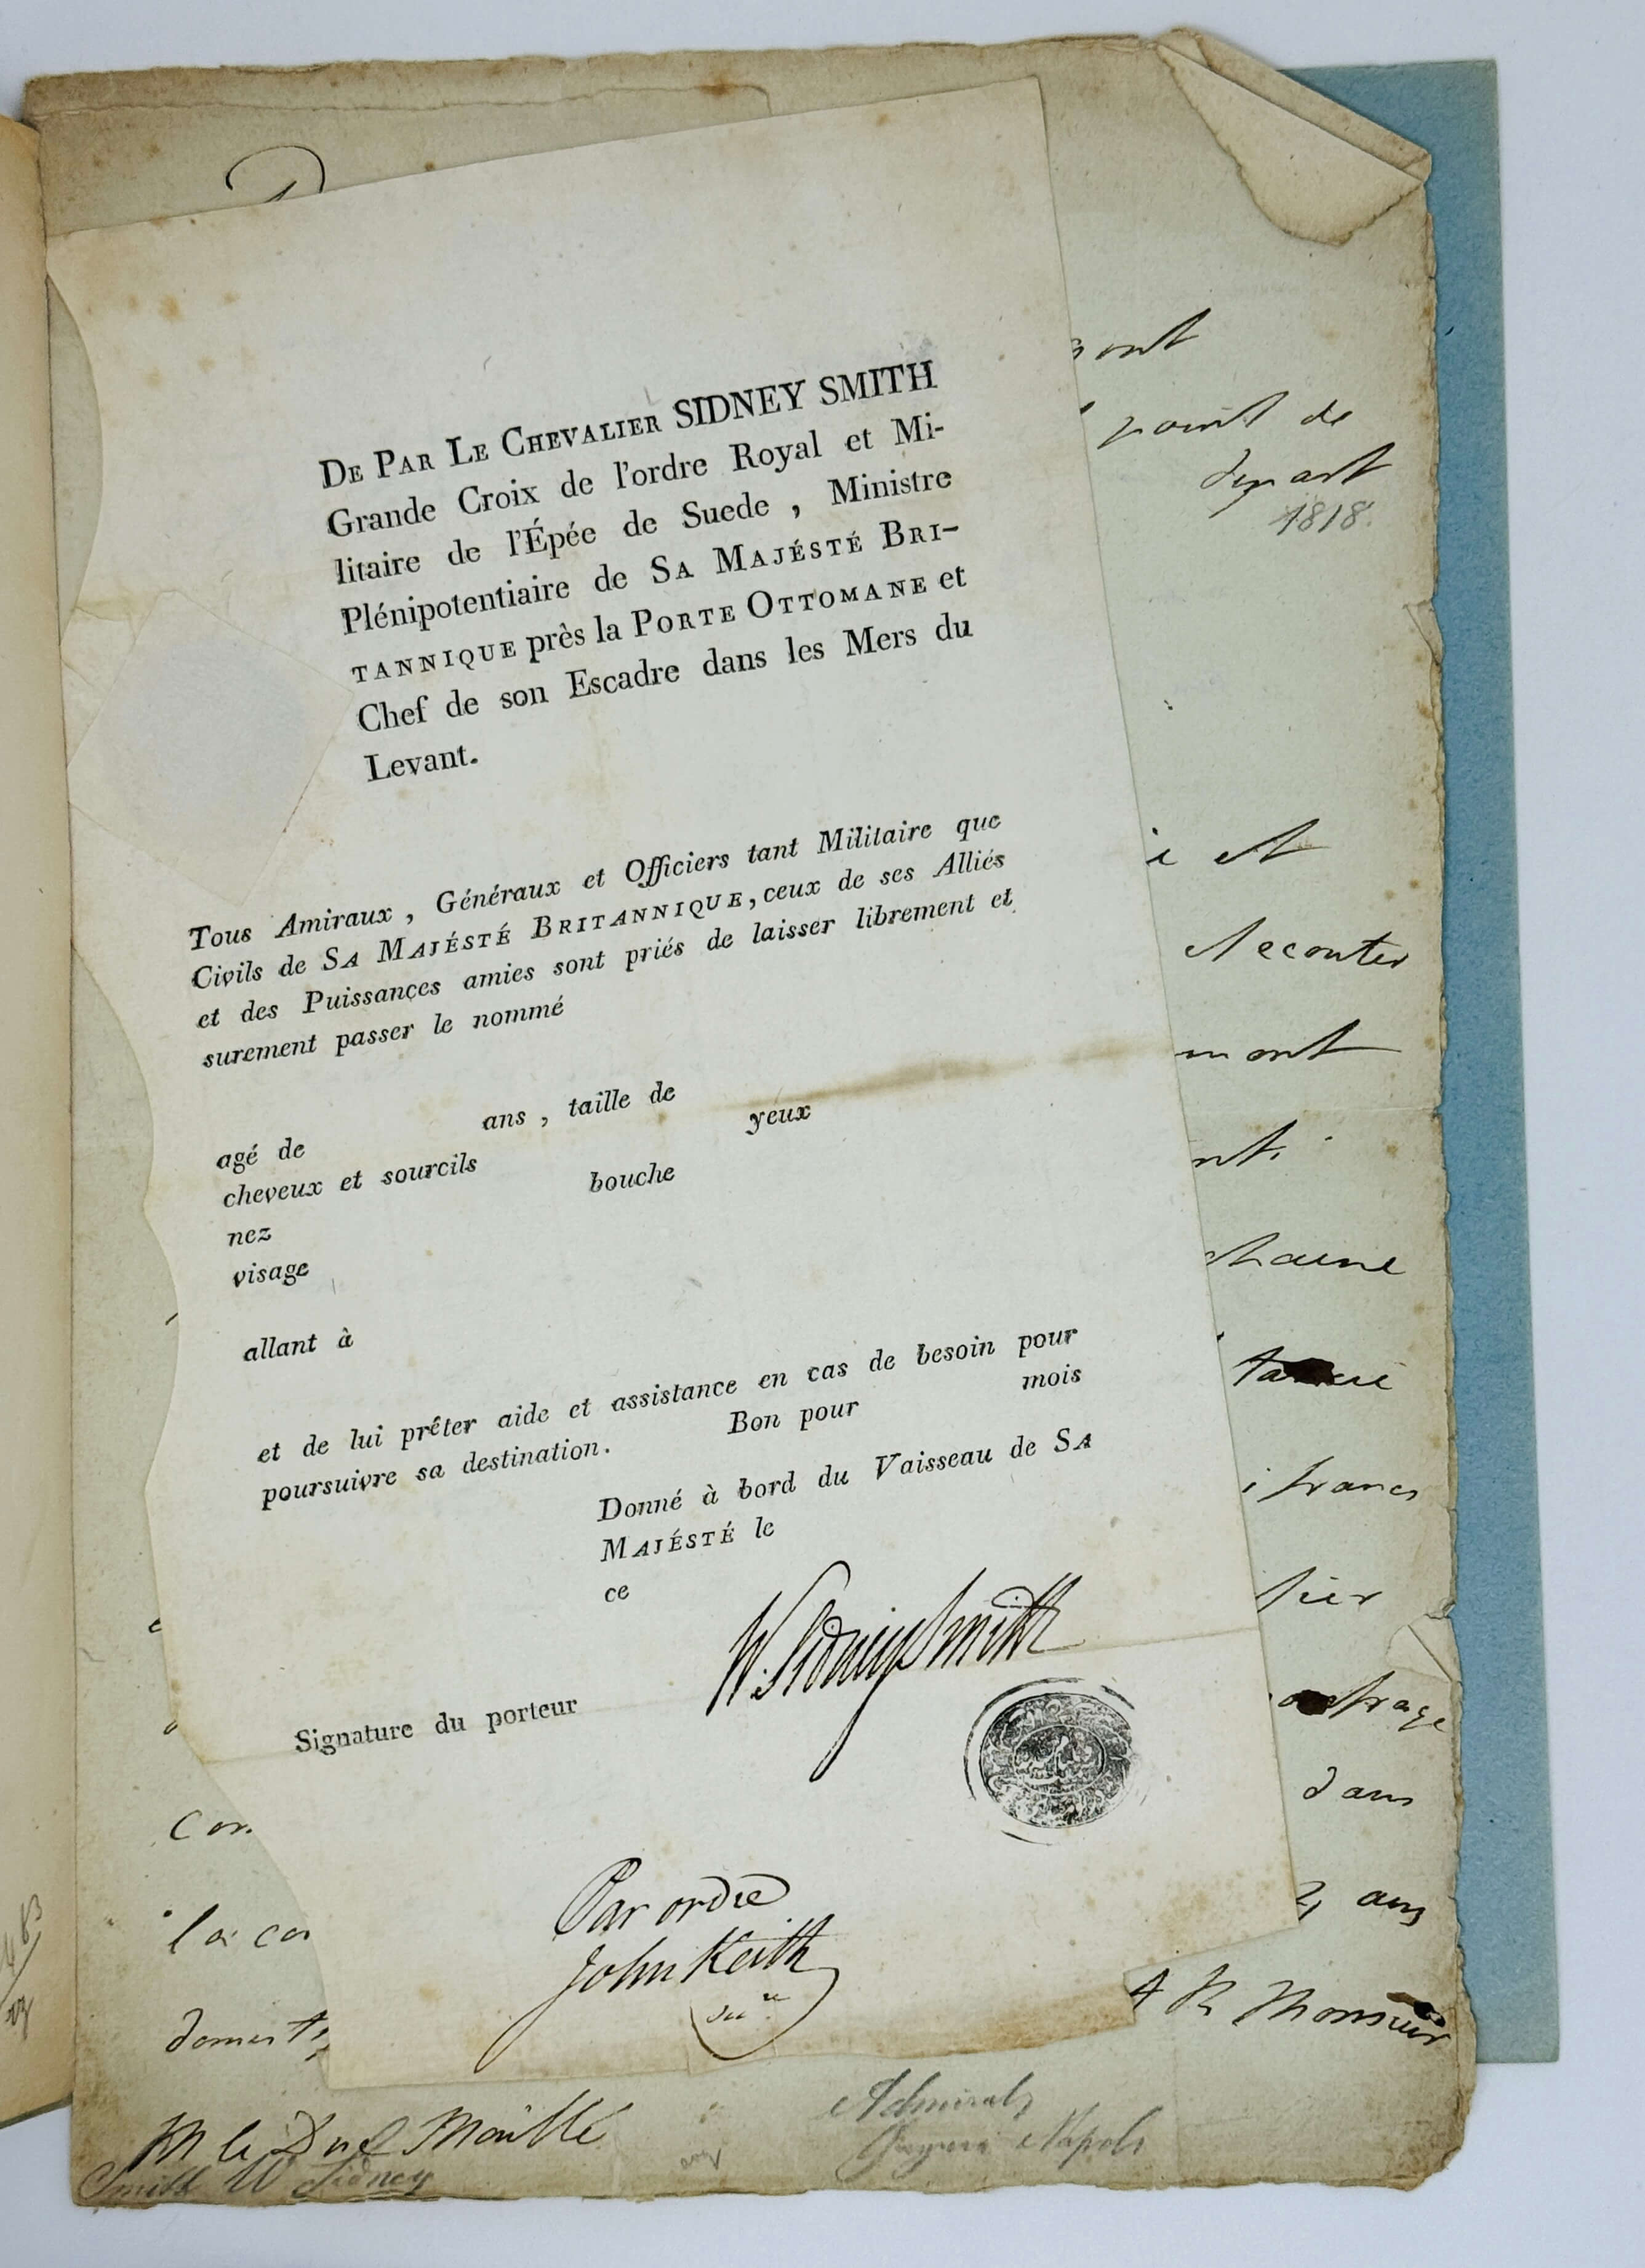 DE PAR LE CHEVALIER SIDNEY SMITH
Grande Croix de l'ordre Royal et Mi-
litaire de l'Épée de Suede , Ministre
Plénipotentiaire de SA MAJÉSTÉ BRI-
TANNIQUE près la PORTE OTTOMANE et
Chef de son Escadre dans les Mers du
Levant.
Tous Amiraux , Généraux et Officiers tant Militaire que
Civils de SA MAJÉSTÉ BRITANNIQUE, ceux de ses Alliés
et des Puissances amies sont priés de laisser librement et
surement passer le nommé
agé de ans , taille de
cheveux et sourcils yeux
nez bouche
visage
allant à
et de lui prêter aide et assistance en cas de besoin pour
poursuivre sa destination. Bon pour mois
Donné à bord du Vaisseau de SA
MAJÉSTÉ le
ce
W. Sidney Smith
Signature du porteur
Par ordre
John Keith
point de
depart
1818.
et
et econter
mont
francs
dans
ans
A R Monsieur
M le Duc Maillé
Smith W Sidney
Admiral